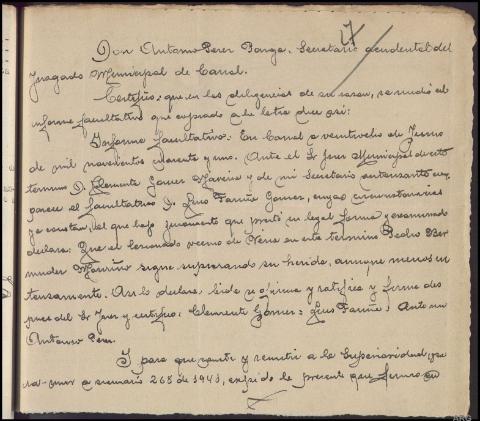 17
Don Antonio Perez Ponga, Secretario accidental del
Juzgado Municipal de Canal.
Certifico: que en las diligencias de su razon, se emitió el
informe facultativo que copiado a la letra dice asi:
Informe facultativo: En Canal a veintiocho de Junio
de mil novecientos cuarenta y uno. Ante el Sr Juez Municipal de este
termino D. Clemente Gomez y de mi Secretario com
parece el facultativo D. Luis Fariña Gomez, cuyas circunstancias
ya constan, el que bajo juramento que prestó en legal forma y examinado
declara: Que el lesionado vecino de en este termino Pedro Ber
mudez Mauriño sigue supurando su herida, aunque menos in
tensamente. Asi lo declara, leida se afirma y ratifica y firma des
pues del Sr Juez y certifico: Clemente Gomez = Luis Fariña = Ante mi
Antonio Perez.
Y para que conste y remitir a la Superioridad, para
unir a sumario 268 de 1941, expido la presente que firmo en
ARG